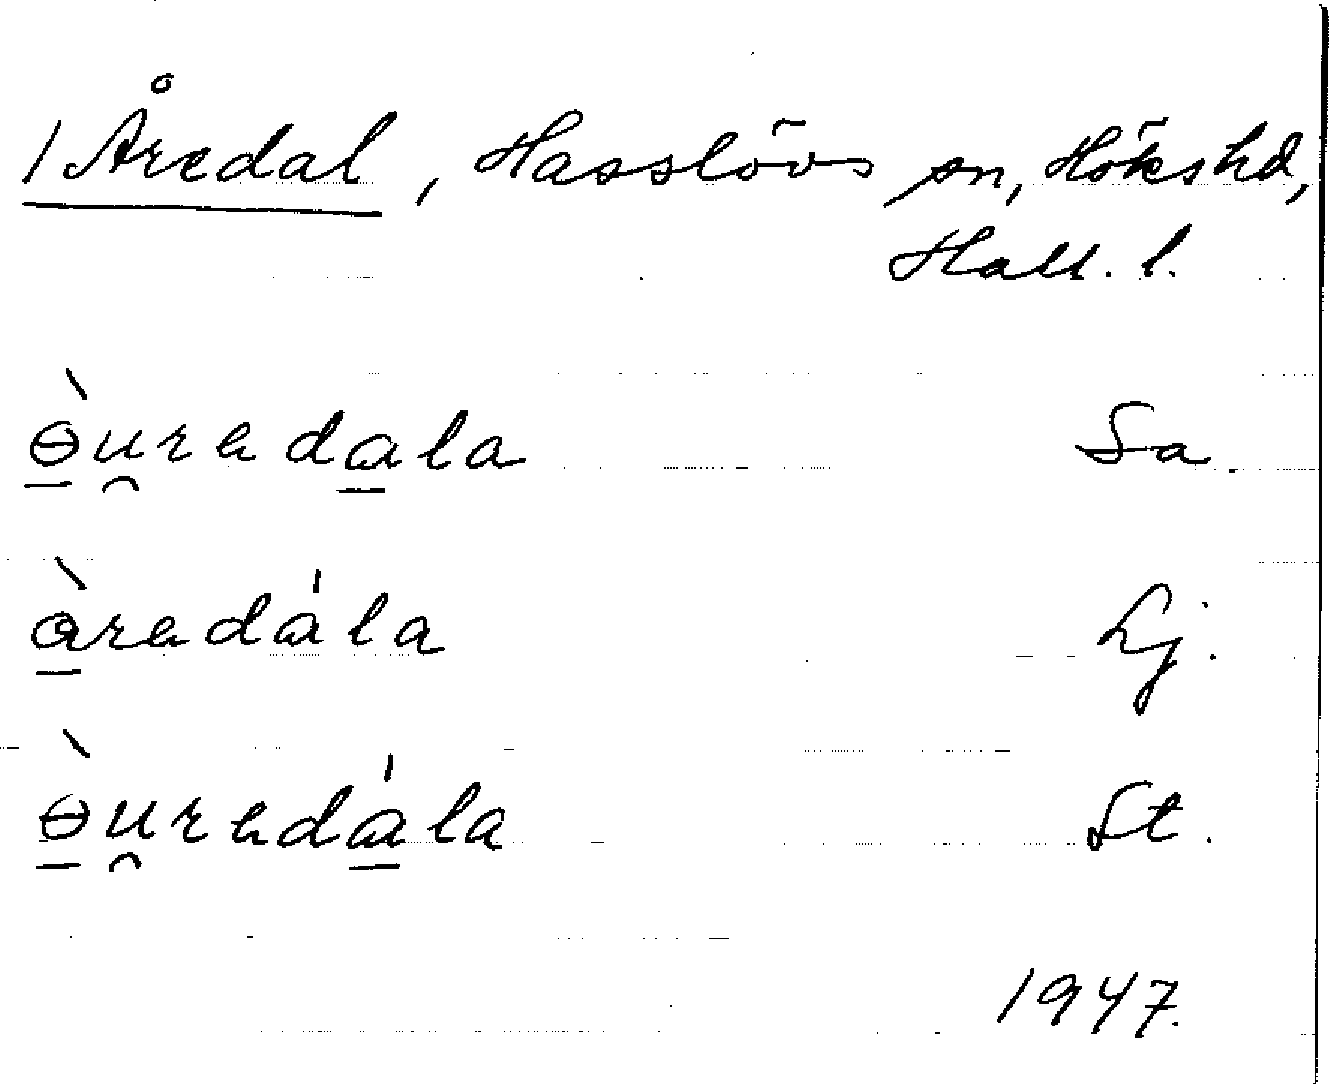 1 Åredal, Hasslövs sn, Höks hd,
Hall. l.
ɵ̠̀u̯reda̠la Sa.
à̠redála Lj.
ɵ̠̀u̯redá̠la St.
1947.